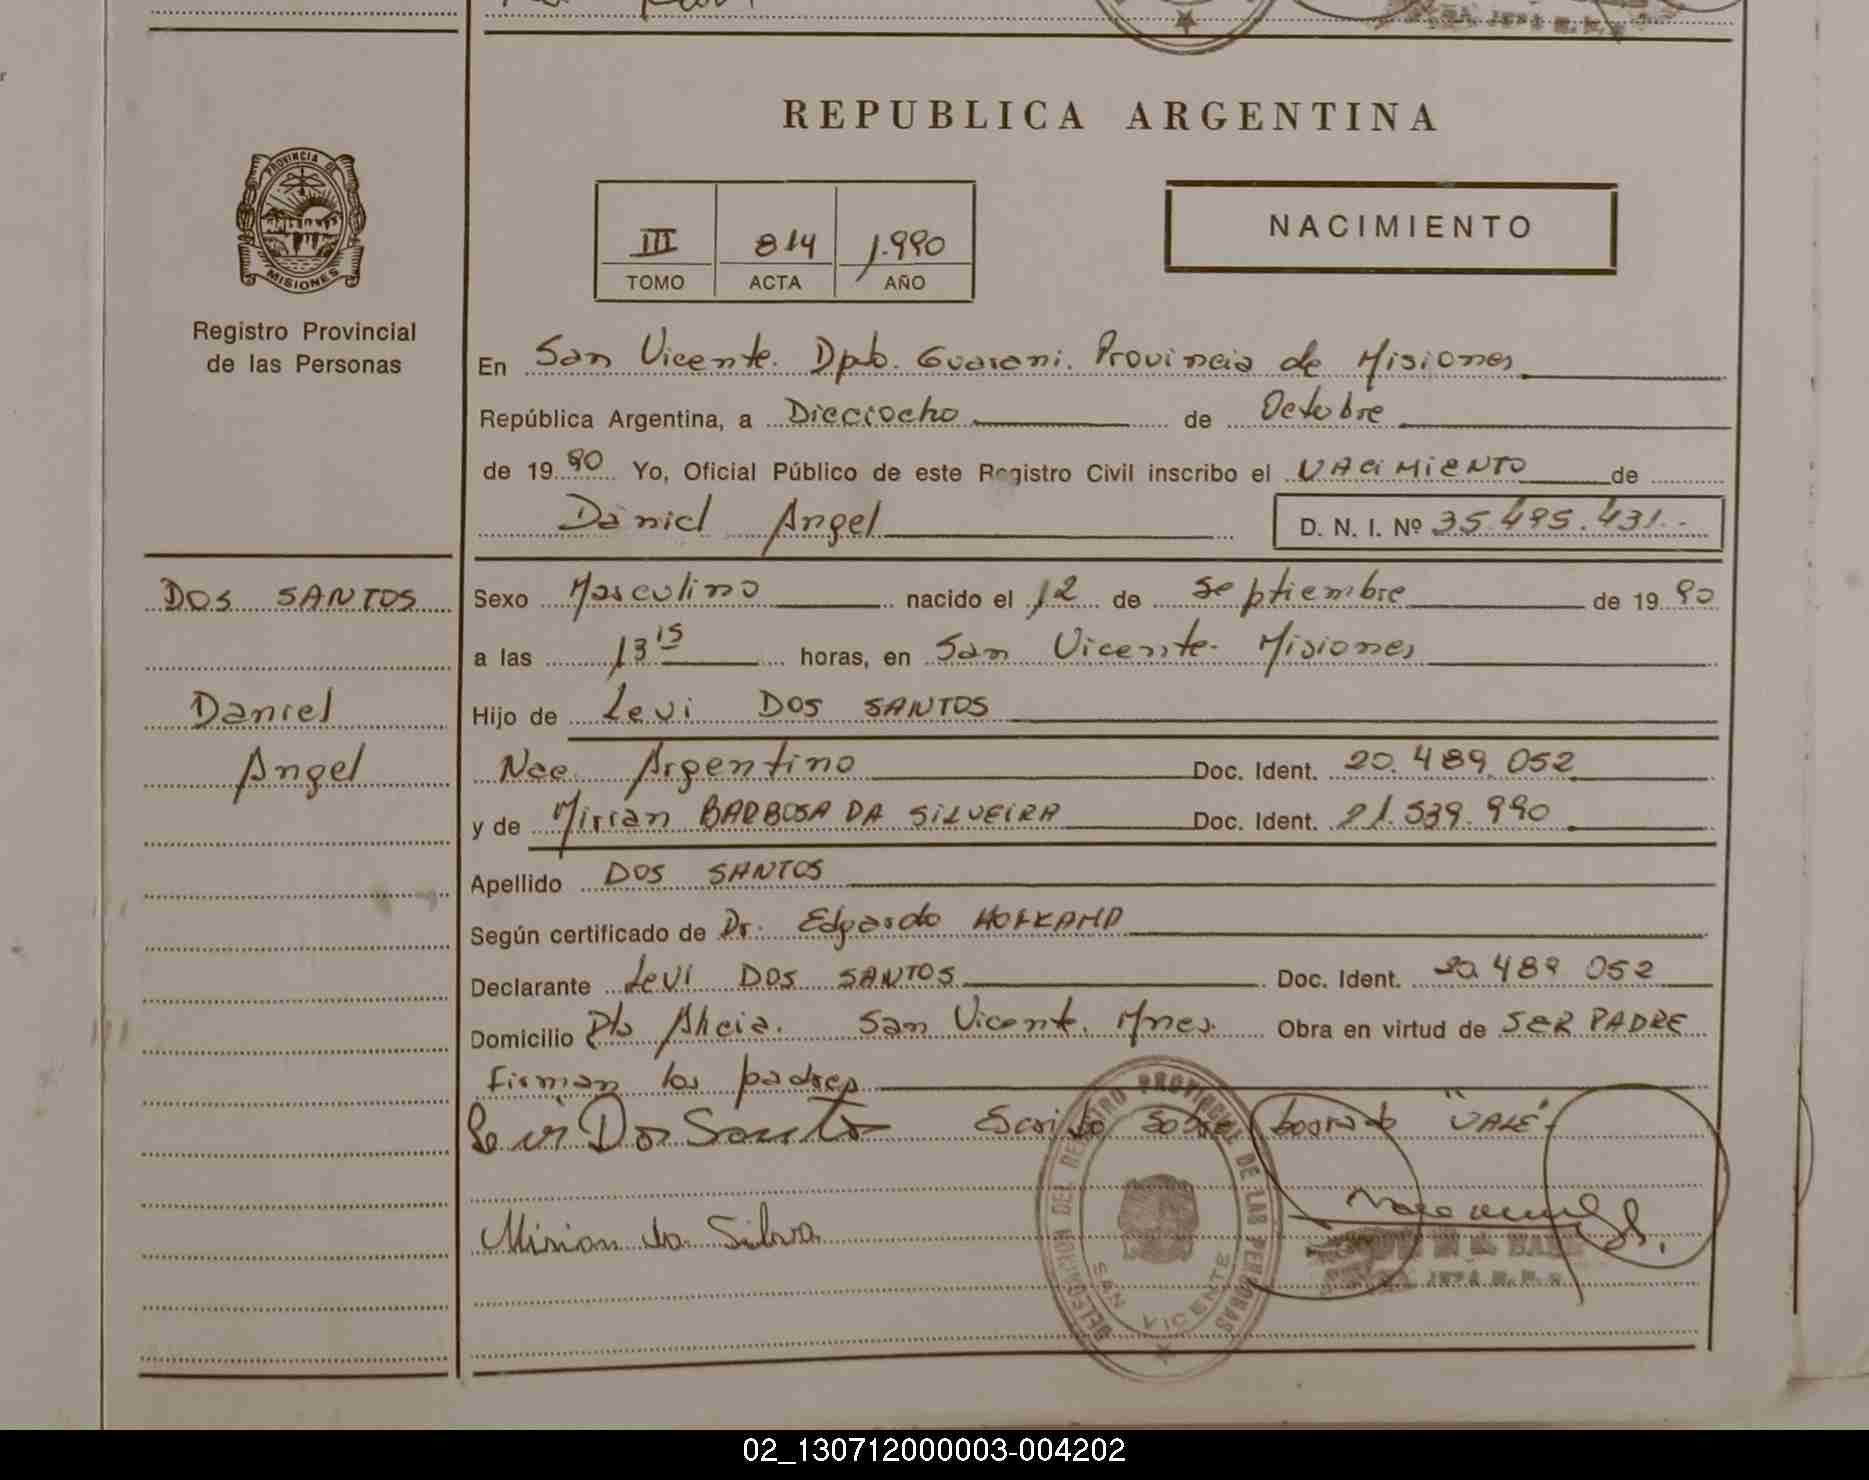 REPUBLICA ARGENTINA
PROVINCIA DE
MISIONES
Registro Provincial
de las Personas
III 814 1.990
TOMO ACTA AÑO
NACIMIENTO
En San Vicente. Dpto. Guarani. Provincia de Misiones
República Argentina, a Dieciocho de Octubre
de 19 90 Yo, Oficial Público de este Registro Civil inscribo el NACIMIENTO de
Daniel Angel
D. N. I. Nº 35.495.431.-
DOS SANTOS
Daniel
Angel
Sexo Masculino nacido el 12 de Septiembre de 19 90
a las 13 15 horas, en San Vicente- Misiones
Hijo de Levi DOS SANTOS
Nac. Argentino Doc. Ident. 20.489.052
y de Mirian BARBOSA DA SILVEIRA Doc. Ident. 21.539.990
Apellido DOS SANTOS
Según certificado de Dr. Edgardo
Declarante Levi DOS SANTOS Doc. Ident. 20.489 052
Domicilio San Vicente. Mnes. Obra en virtud de SER PADRE
Firman los padres
Levi Dos Santo Escrito sobre borrado "VALE"-
Mirian da Silva
DELEGACION DEL REGISTRO PROVINCIAL DE LAS PERSONAS
SAN VICENTE
02_130712000003-004202